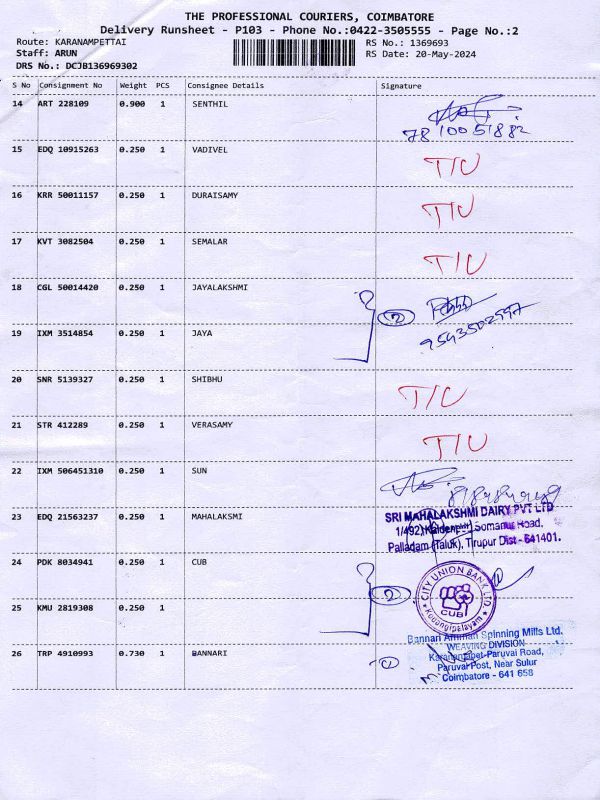 THE PROFESSIONAL COURIERS, COIMBATORE
Delivery Runsheet - P103 - Phone No.:0422-3505555 - Page No.:2
Route: KARANAMPETTAI
RS No.: 1369693
Staff: ARUN
RS Date: 20-May-2024
DRS No.: DCJB136969302
S No Consignment No Weight PCS Consignee Details Signature
14 ART 228109 0.900 1 SENTHIL
7810051882
15 EDQ 10915263 0.250 1 VADIVEL T/U
16 KRR 50011157 0.250 1 DURAISAMY T/U
17 KVT 3082504 0.250 1 SEMALAR T/U
18 CGL 50014420 0.250 1 JAYALAKSHMI
2
19 IXM 3514854 0.250 1 JAYA
20 SNR 5139327 0.250 1 SHIBHU T/U
21 STR 412289 0.250 1 VERASAMY T/U
22 IXM 506451310 0.250 1 SUN
23 EDQ 21563237 0.250 1 MAHALAKSMI
SRI MAHALAKSHMI DAIRY PVT LTD
1/492, Road,
Palladam (Taluk), Tirupur Dist - 641401.
24 PDK 8034941 0.250 1 CUB
2
CITY UNION BANK LTD
CUB
25 KMU 2819308 0.250 1
26 TRP 4910993 0.730 1 BANNARI
1
Bannari Amman Spinning Mills Ltd.
WEAVING DIVISION
Karanampet-Paruvai Road,
Paruvai Post, Near Sulur
Coimbatore - 641 658